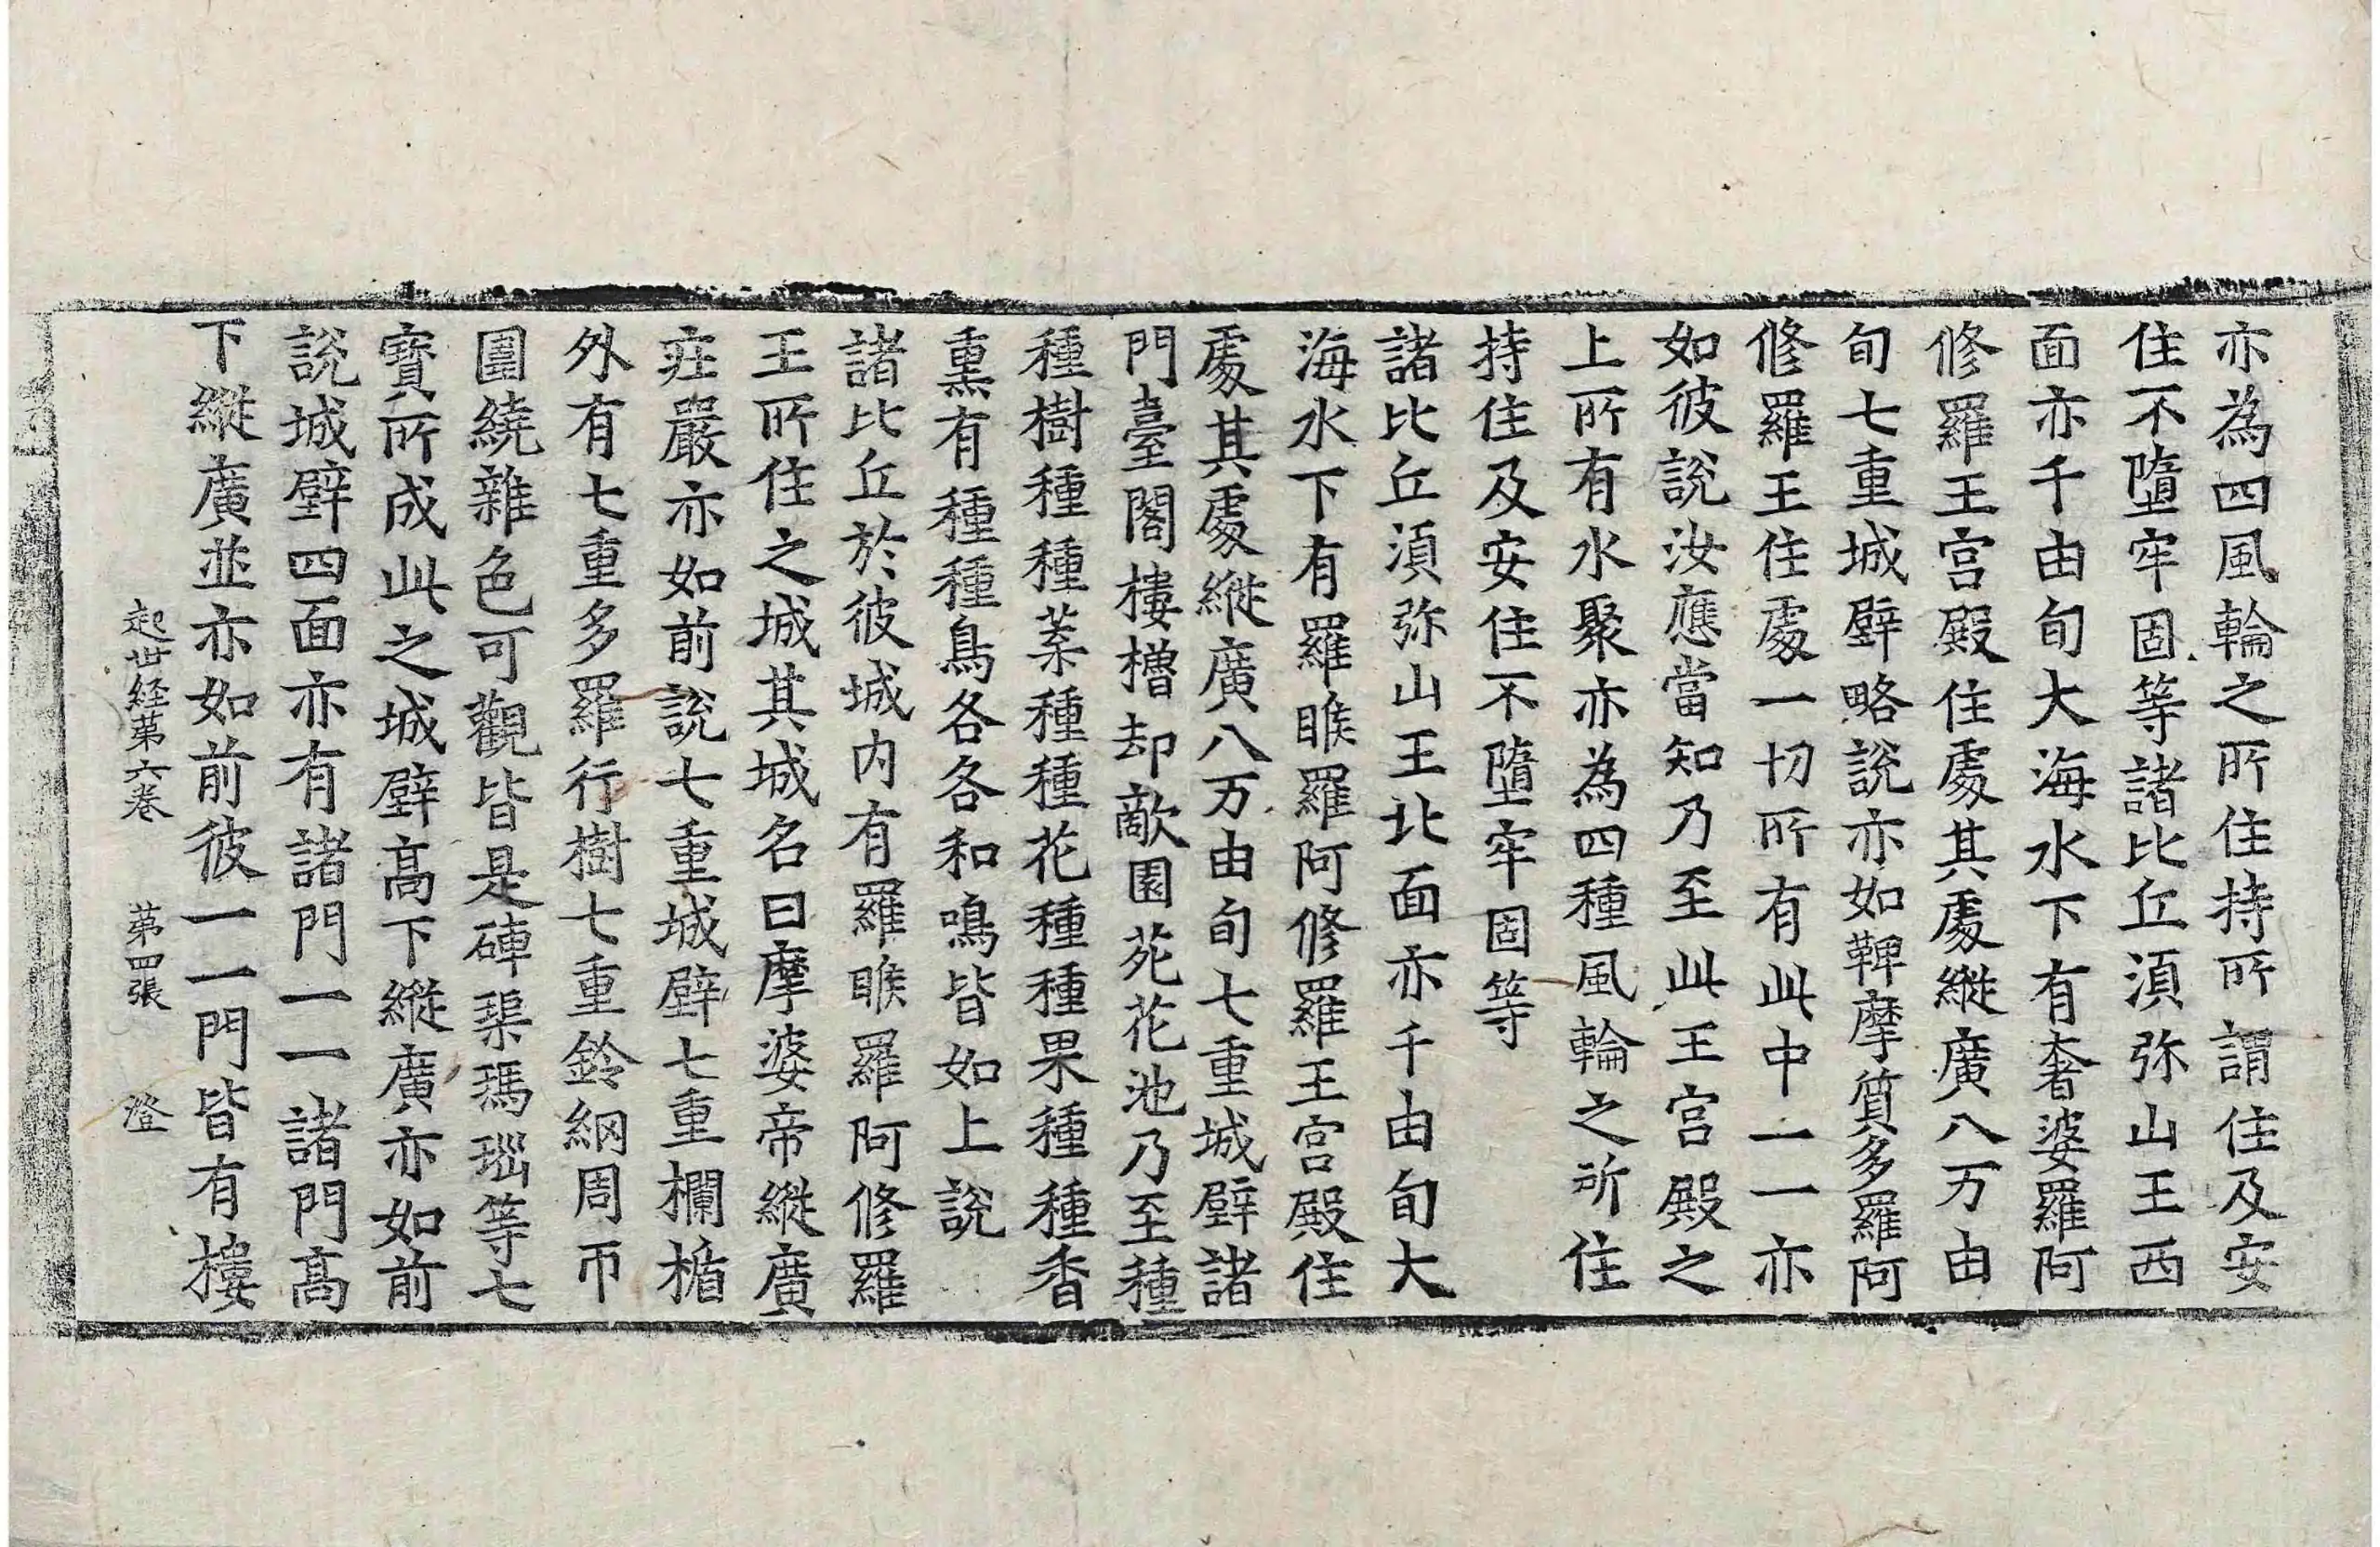 亦為四風輪之所住持所謂住及安
住不墮牢固等諸比丘湏弥山王西
面亦千由旬大海水下有奢婆羅阿
修羅王宫殿住處其處縱廣八万由
旬七重城壁略說亦如鞞摩質多羅阿
修羅王住處一切所有此中一一亦
如彼說汝應當知乃至此王宫殿之
上所有水聚亦為四種風輪之所住
持住及安住不墮牢固等
諸比丘湏弥山王北面亦千由旬大
海水下有羅睺羅阿修羅王宫殿住
處其處縱廣八万由旬七重城壁諸
門臺閣樓櫓却敵園苑花池乃至種
種樹種種葉種種花種種果種種香
熏有種種鳥各各和鳴皆如上說
諸比丘於彼城内有羅睺羅阿修羅
王所住之城其城名曰摩婆帝縱廣
莊嚴亦如前說七重城壁七重欄楯
外有七重多羅行樹七重鈴網周帀
圍繞雜色可觀皆是硨磲瑪瑙等七
寳所成此之城壁髙下縱廣亦如前
說城壁四面亦有諸門一一諸門髙
下縱廣並亦如前彼一一門皆有樓
起世経第六卷 第四張 澄